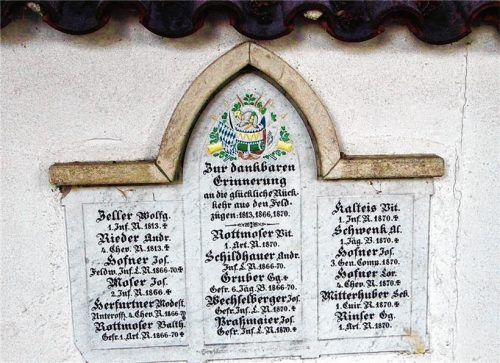 Zur dankbaren
Erinnerung
an die glückliche Rück-
kehr aus den Feld-
zügen: 1813, 1866, 1870.
Zeller Wolfg.
1. Inf. R. 1813. ✠
Rieder Andr.
4. Chev. R. 1813. ✠
Hofner Jos.
Feldw. Inf. L. R. 1866-70 ✠
Moser Jos.
2. Inf. R. 1866.
Herfurtner Modest.
Unteroff. 4. Chev. R. 1866 ✠
Rottmoser Balth.
Gefr. 1. Art. R. 1870. ✠
Rottmoser Vit.
1. Art. R. 1870.
Schildhauer Andr.
Inf. L. R. 1866-70.
Gruber Gg.
Gefr. 6. Jäg. B. 1866-70.
Wechselberger Jos.
Gefr. Inf. L. R. 1870.
Praßmaier Jos.
Gefr. Inf. L. R. 1870.
Kalteis Vit.
1. Inf. R. 1870. ✠
Schwenk Al.
1. Jäg. B. 1870. ✠
Hofner Jos.
3. Gen. Comp. 1870.
Hofner Lor.
4. Chev. R. 1870.
Mitterhuber Seb.
1. Cuir. R. 1870.
Rinser Gg.
1. Art. R. 1870.